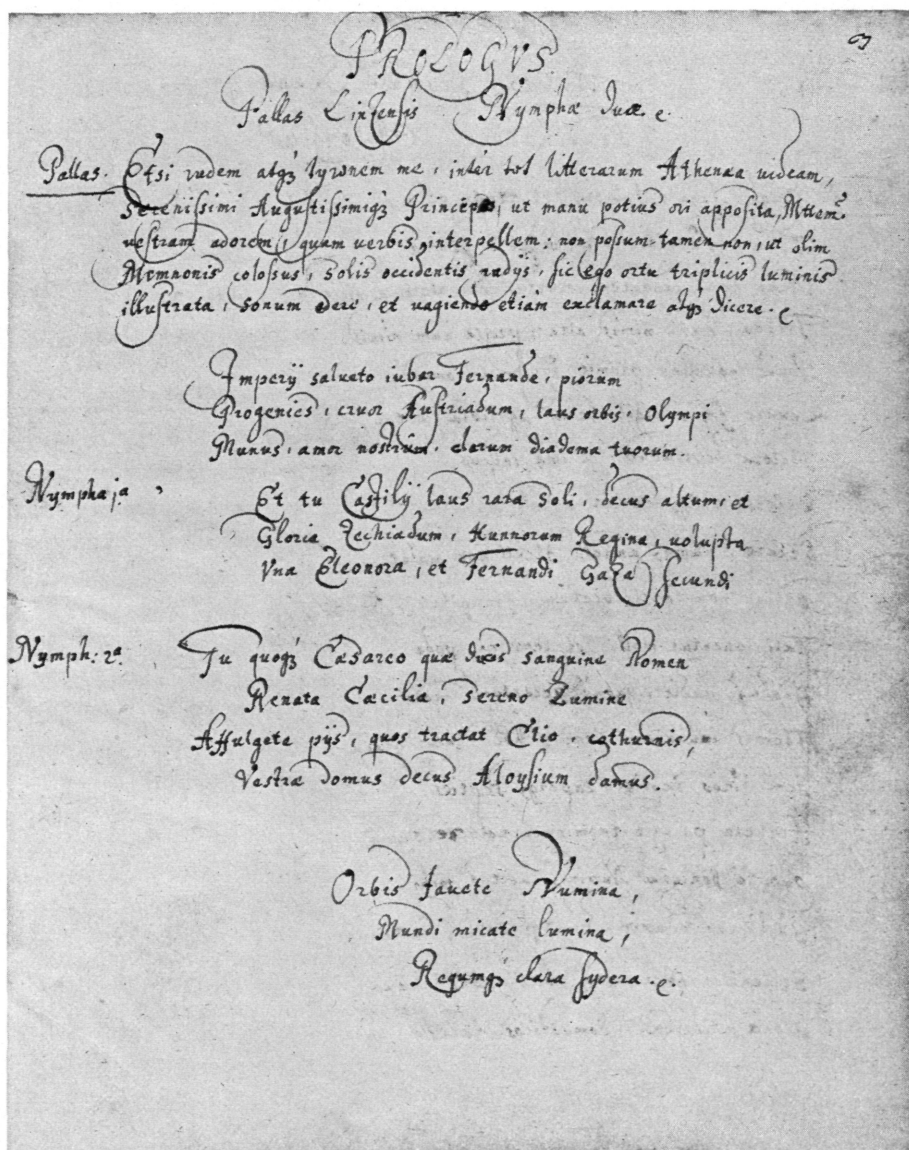 3
PROLOGVS
Pallas Linzensis Nymphæ duæ.
Pallas. Etsi rudem atqȝ tyronem me, inter tot litterarum Athenæa uideam,
Serenissimi Augustissimiqȝ Principes, ut manu potius ori apposita, Mttem
uestram adorem, quam uerbis interpellem: non possum tamen non, ut olim
Memnonis colossus, solis occidentis radijs, sic ego ortu triplicis luminis
illustrata, sonum dare, et uagiendo etiam exclamare atqȝ dicere.
Imperij salueto iubar Fernande, piorum
Progenies, cruor Austriadum, laus orbis, Olympi
Munus, amor nostrûm, clarum diadema tuorum.
Nympha 1a Et tu Castilij laus rara soli, decus altum, et
Gloria Zechiadum, Hunnorum Regina, uolupta
Vna Eleonora, et Fernandi Gaza secundi
Nymph: 2a. Tu quoqȝ Cæsareo quæ ducis sanguine Nomen
Renata Cæcilia, sereno Lumine
Affulgete pijs, quos tractat Clio, cothurnis,
Vestræ domus decus Aloysium damus.
Orbis fauete Numina,
Mundi micate lumina,
Regumqȝ clara sydera.